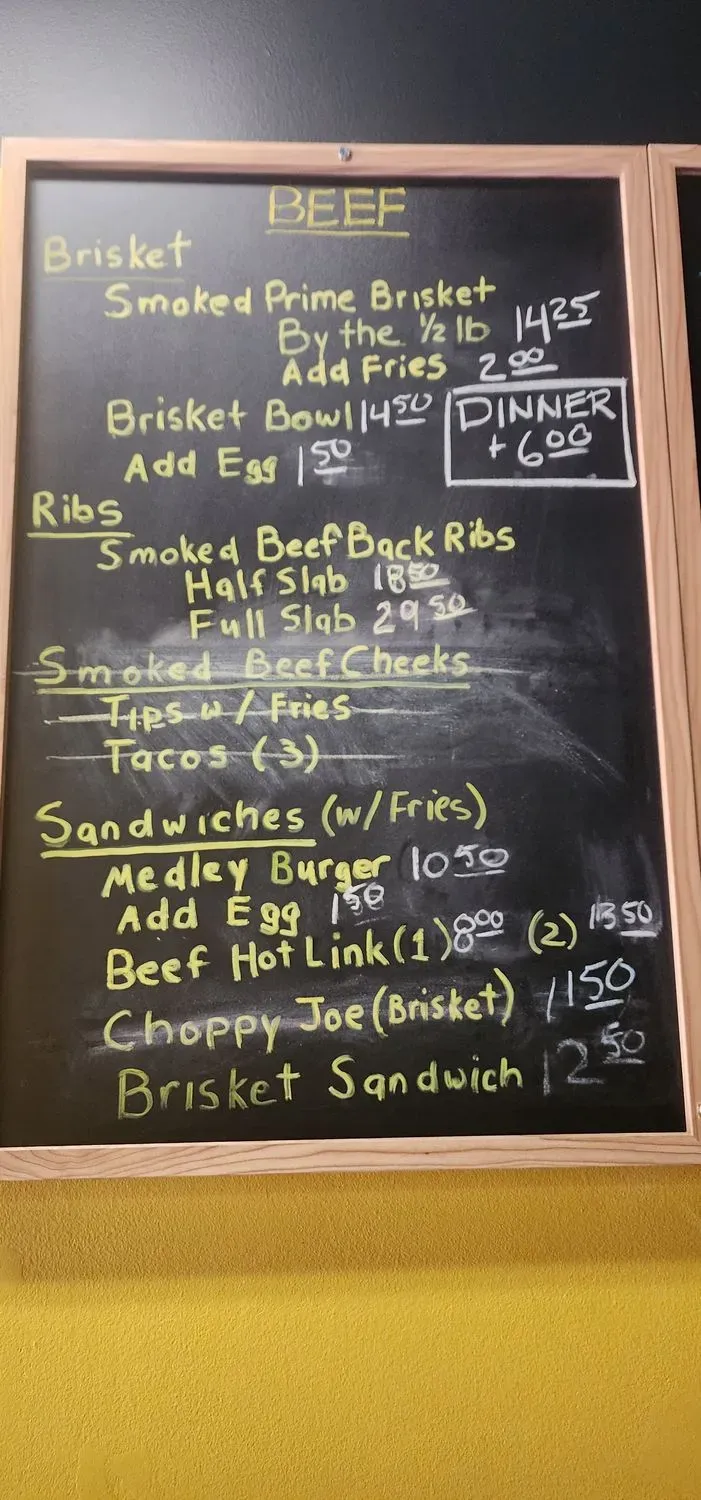 BEEF
Brisket
Smoked Prime Brisket
By the ½ lb 14 25
Add Fries 2 00
Brisket Bowl 14 50
DINNER
+ 6 00
Add Egg 1 50
Ribs
Smoked Beef Back Ribs
Half Slab 18 50
Full Slab 29 50
Smoked Beef Cheeks
Tips w/ Fries
Tacos (3)
Sandwiches (w/Fries)
Medley Burger 10 50
Add Egg 1 50
Beef Hot Link (1) 8 00 (2) 13 50
Choppy Joe (Brisket) 11 50
Brisket Sandwich 12 50